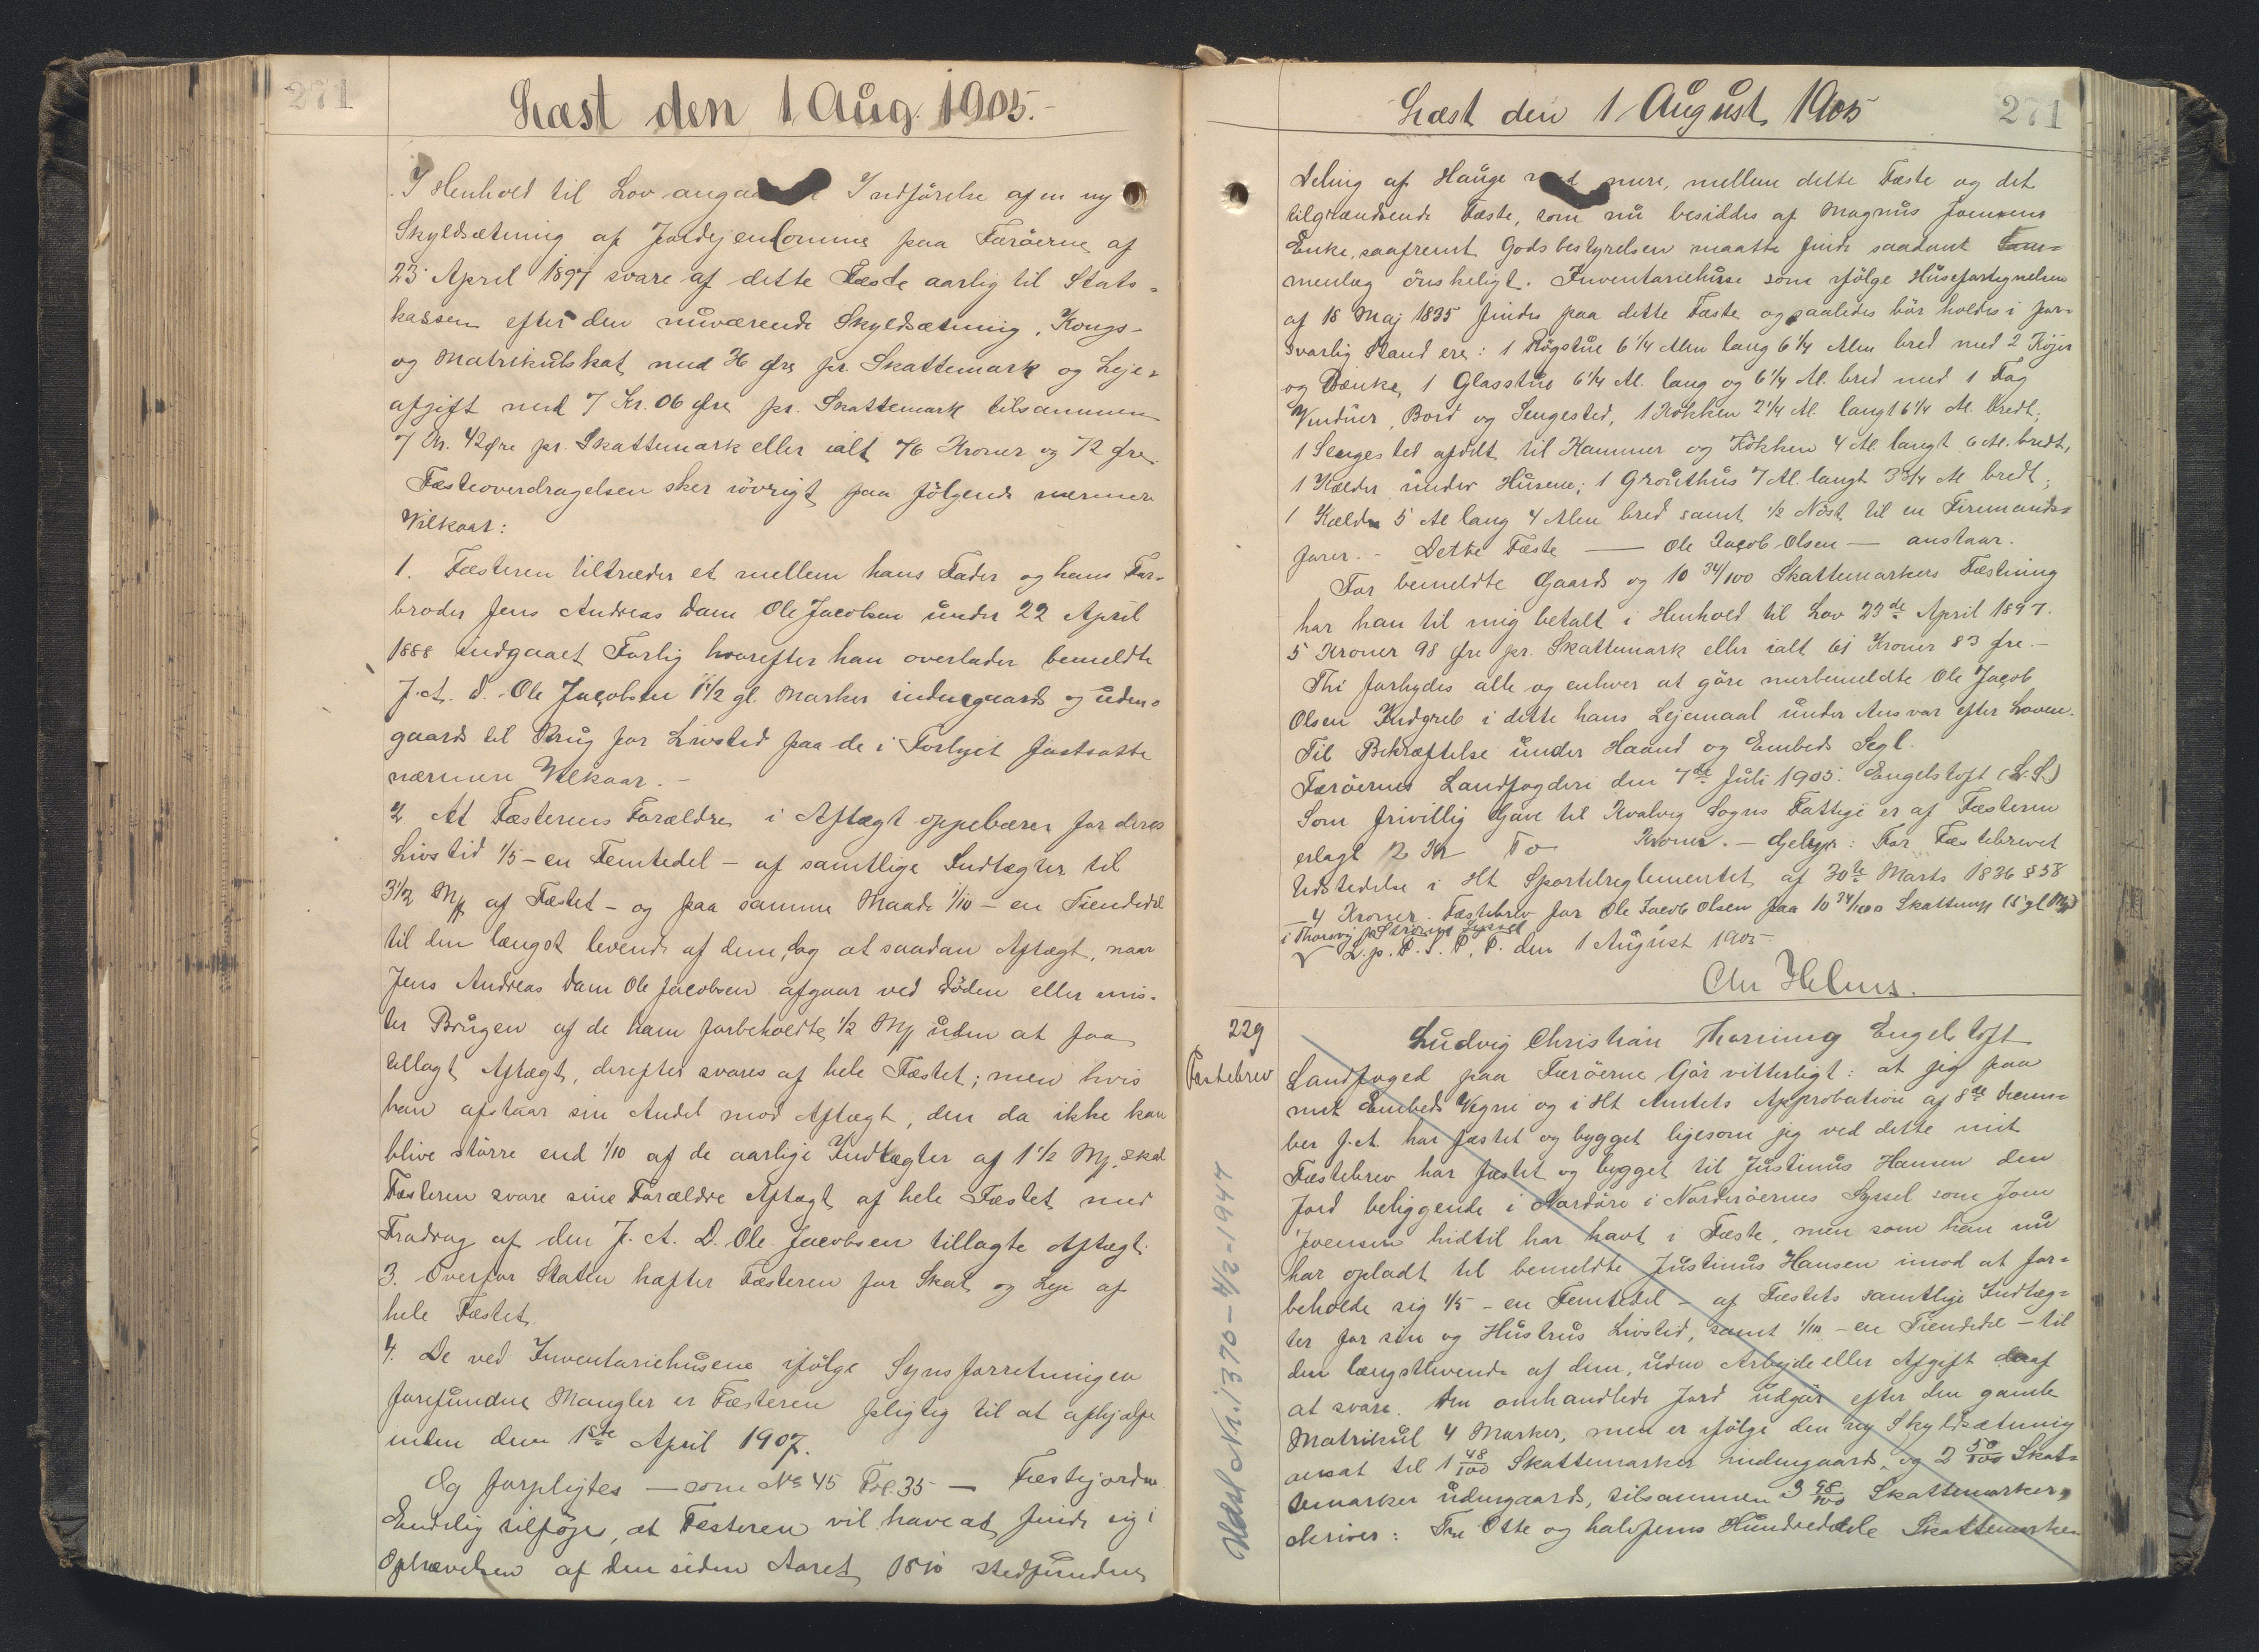 271
Læst den 1 Aug. 1905.-
I Henhold til Lov angaa Indførelse af en ny
Skyldsætning af Jordejendomme paa Færøerne af
23 April 1897 svare af dette Fæste aarlig til Stats-
kassen efter den nuværende Skyldsætning, Kongs-
og Matrikulskat med 36 Øre pr. Skattemark og Leje-
afgift med 7 Kr. 06 Øre pr. Skattemark tilsammen
7 Kr. 42 Øre pr. Skattemark eller ialt 76 Kroner og 72 Øre.
Fæsteoverdragelsen sker iøvrigt paa følgende nærmere
Vilkaar:
1. Fæsteren tiltræder et mellem hans Fader og hans Far-
broder Jens Andreas Dam Ole Jacobsen under 22 April
1888 indgaaet Forlig hvorefter han overlader bemeldte
J. A. D. Ole Jacobsen 1½ gl. Marker indengaards og uden-
gaards til Brug for Livstid paa de i Forliget fastsatte
nærmere Vilkaar.-
2 At Fæsterens Forældre i Aftægt oppebærer for deres
Livstid 1/5 - en Femtedel - af samtlige Indtægter til
3½ Mk af Fæstet - og paa samme Maade 1/10 - en Tiendedel
til den længst levende af dem, og at saadan Aftægt, naar
Jens Andreas Dam Ole Jacobsen afgaar ved Døden eller mis-
ter Brugen af de ham forbeholdte ½ Mk uden at faa
tillagt Aftægt, derefter svares af hele Fæstet; men hvis
han afstaar sin Andel mod Aftægt, den da ikke kan
blive større end 1/10 af de aarlige Indtægter af 1½ Mk, skal
Fæsteren svare sine Forældre Aftægt af hele Fæstet med
Fradrag af den J. A. D. Ole Jacobsen tillagte Aftægt.
3. Overfor Staten hæfter Fæsteren for Skat og Leje af
hele Fæstet.
4. De ved Inventariehusene ifølge Synsforretningen
forefundne Mangler er Fæsteren pligtig til at afhjælpe
inden den 1ste April 1907.
Og forpligtes - som No 45 Fol. 35 - Fæstejorden
Endelig tilføjes, at Fæsteren vil have at finde sig i
Ophævelsen af den siden Aaret 1810 stedfundne
Læst den 1 August 1905
271
Deling af Hauge med mere, mellem dette Fæste og det
tilgrændsende Fæste, som nu besiddes af Magnus Joensens
Enke, saafremt Godsbestyrelsen maatte finde saadant Sam-
menlæg ønskeligt. Inventariehuse som ifølge Husefortegnelsen
af 18 Maj 1835 findes paa dette Fæste og saaledes bør holdes i for-
svarlig Stand ere: 1 Røgstue 6¼ Alen lang 6¼ Alen bred med 2 Køjer
og Bænke, 1 Glasstue 6¼ Al. lang og 6¼ Al. bred med 1 Fag
Vinduer, Bord og Sengested, 1 Køkken 2¼ Al. langt 6¼ Al. bredt,
1 Sengested afdelt til Kammer og Køkken 4 Al. langt 6 Al. bredt,
1 Kælder under Husene; 1 Grouthus 7 Al. langt 3¾ Al bredt;
1 Kælder 5 Al lang 4 Alen bred samt ½ Nøst til en Firemands-
farer. - Dette Fæste - Ole Jacob Olsen - anstaar.
For bemeldte Gaards og 10 34/100 Skattemarkers Fæstning
har han til mig betalt i Henhold til Lov 23de April 1897.
5 Kroner 98 Øre pr. Skattemark eller ialt 61 Kroner 83 Øre.-
Thi forbydes alle og enhver at gøre nærbemeldte Ole Jacob
Olsen Indgreb i dette hans Lejemaal under Ansvar efter Loven.
Til Bekræftelse under Haand og Embeds Segl.
Færøernes Landfogderi den 7de Juli 1905. Engelstoft (L.S.)
Som frivillig Gave til Kvalvig Sogns Fattige er af Fæsteren
erlagt 2 Kr To Kroner. - Gebyr: For Fæstebrevet
Udstedelse i Ht Sportelreglementet af 30te Marts 1836 § 58
4 Kroner. Fæstebrev for Ole Jacob Olsen paa 10 34/100 Skattemk (5 gl Mk)
i Thorsvig p Strømø Syssel
L. p. F. S. P. P. den 1 August 1905.
Chr Helms.
229
Fæstebrev
Ludvig Christian Thorning Engelstoft
Landfoged paa Færøerne Gør vitterligt: at jeg paa
mit Embeds Vegne og i Ht Amtets Approbation af 8de Decem-
ber f. A. har fæstet og bygget ligesom jeg ved dette mit
Fæstebrev har fæstet og bygget til Justinus Hansen den
Jord beliggende i Nordøre i Norderøernes Syssel som Joen
Joensen hidtil har havt i Fæste, men som han nu
har opladt til bemeldte Justinus Hansen imod at for-
beholde sig 1/5 - en Femtedel - af Fæstets samtlige Indtæg-
ter for sin og Hustrus Livstid, samt 1/10 - en Tiendedel - til
den længstlevende af dem, uden Arbejde eller Afgift deraf
at svare. Den omhandlede Jord udgør efter den gamle
Matrikul 4 Marker, men er ifølge den ny Skyldsætning
ansat til 1 48/100 Skattemarker indengaards, og 2 50/100 Skat-
temarker udengaards, tilsammen 3 98/100 Skattemarker,
skriver: Tre Otte og halvfems Hundrededele Skattemarker
Udsl. Nr. 1370 - 4/2 - 1944